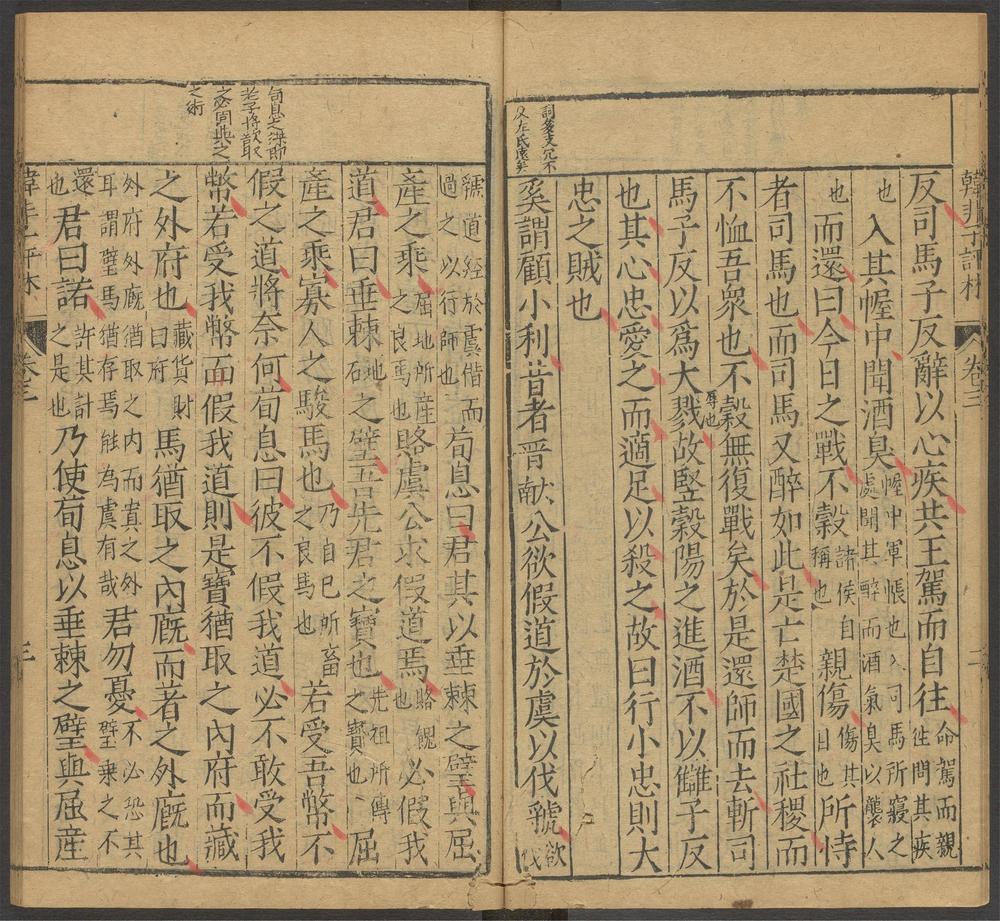 韓非子評林 卷三 二
詞多支冗不
及左氏遠矣
反司馬子反辭以心疾共王駕而自往命駕而親徃問其疾
也入其幄中聞酒臭幄中軍帳也入司馬所寢之處聞其醉而酒氣臭以襲人
也而還曰今日之戰不穀諸侯自稱也親傷傷其目也所恃
者司馬也而司馬又醉如此是亡楚國之社稷而
不恤吾衆也不穀無復戰矣於是還師而去斬司
馬子反以為大戮辱也故竪穀陽之進酒不以讎子反
也其心忠愛之而適足以殺之故曰行小忠則大
忠之賊也
奚謂顧小利昔者晋献公欲假道於虞以伐虢欲伐
荀息之謀即
老子將欲取
之必固與之
之術
虢道經於虞借而過之以行師也荀息曰君其以垂棘之璧與屈
產之乘屈地所産之良馬也賂虞公求假道焉賂餽也必假我
道君曰垂棘地石之璧吾先君之寶也先祖所傳之寳也屈
產之乘寡人之駿馬也乃自己所畜之良馬也若受吾幣不
假之道將奈何荀息曰彼不假我道必不敢受我
幣若受我幣而假我道則是寶猶取之內府而藏
之外府也藏貨財曰府馬猶取之內廐而著之外廐也
外府外廐猶取之内而寘之外耳謂璧馬猶存焉能為虞有哉君勿憂不必恐其璧乘之不
還也君曰諾許其計之是也乃使荀息以垂棘之璧與屈産
韓非子評林 卷三 三